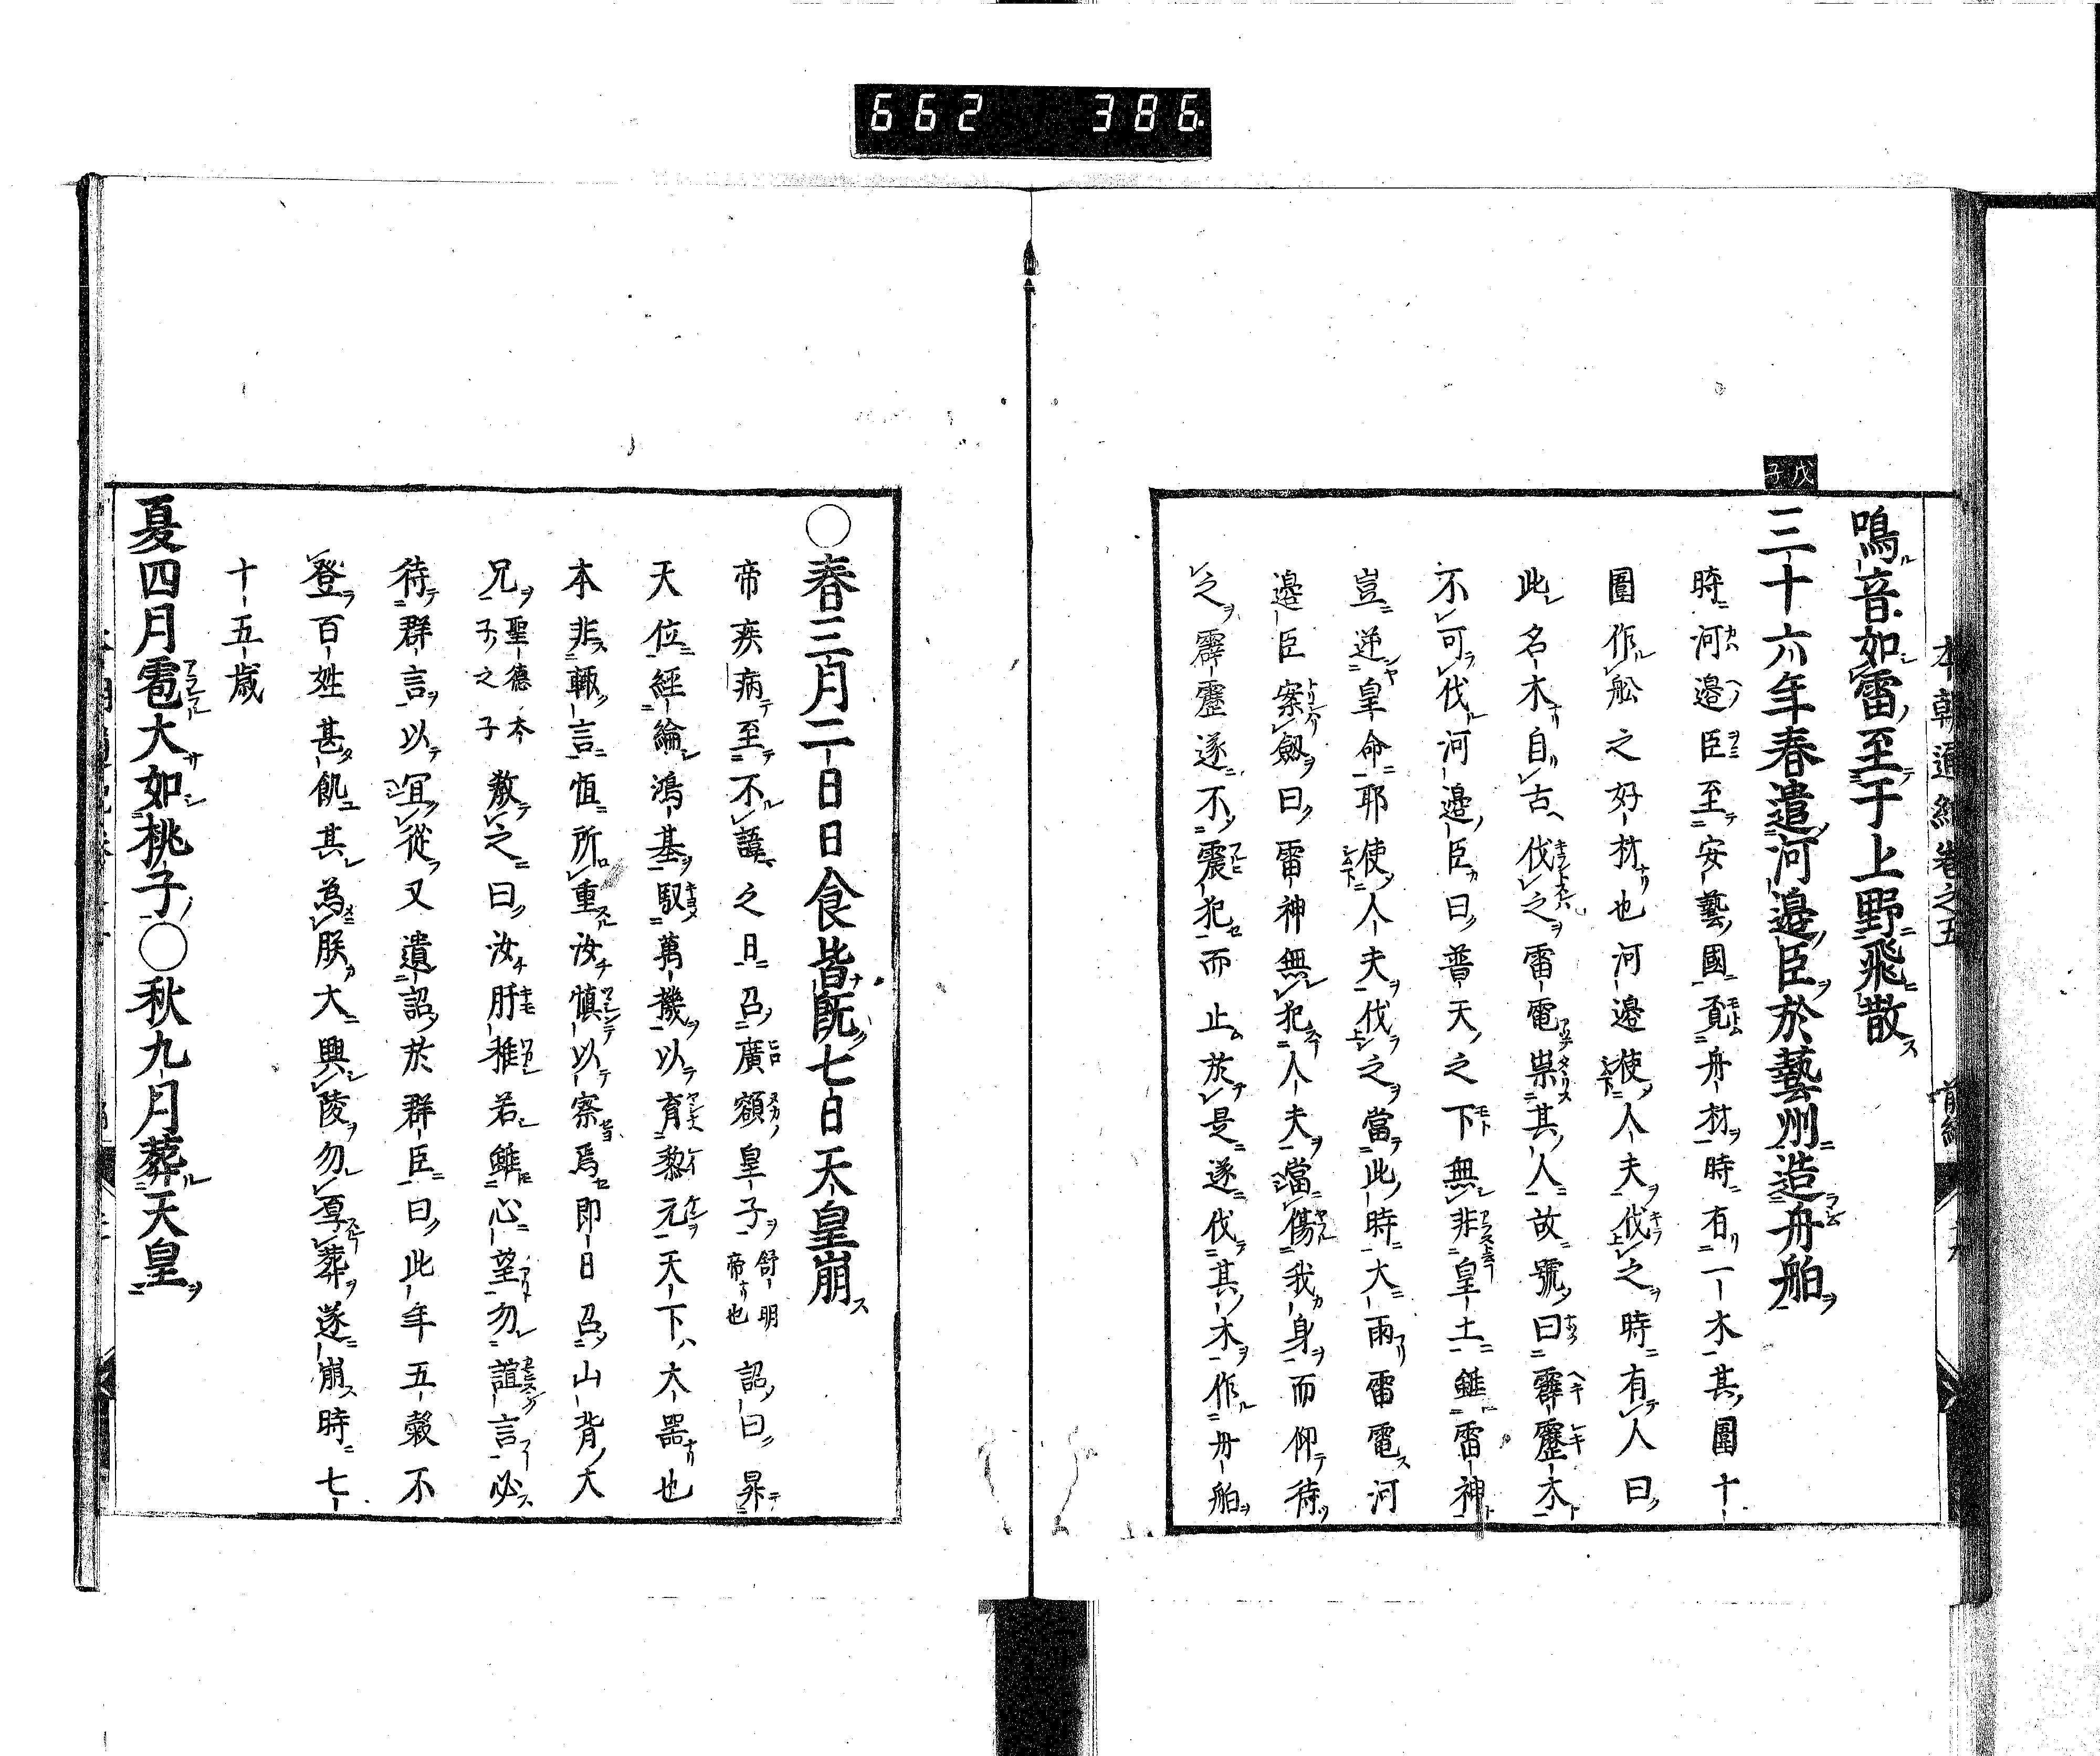 662 386
本朝通紀卷之五 前編
戊子
鳴音如雷至于上野飛散
三十六年春遣河邉臣於藝州造舟舶
時河邉臣至安藝國覓舟材時有一木其圍十
圍作舩之好材也河邉使人夫伐之時有人曰
此名木自古伐之雷電祟其人故號曰霹靂木
不可伐河邉臣曰普天之下無非皇土雖雷神
豈逆皇命耶使人夫伐之當此時大雨雷電河
邉臣案劔曰雷神無犯人夫當傷我身而仰待
之霹靂遂不震犯而止於是遂伐其木作舟舶
○春三月二日日食皆既七日天皇崩
帝疾病至不諱之日召廣額皇子舒明帝也詔曰昇
天位經綸鴻基馭萬機以育黎元天下大器也
本非輙言恒所重汝慎以察焉即日召山背大
兄聖德太子之子敎之曰汝肝稚若雖心望勿諠言必
待群言以宜從又遺詔於群臣曰此年五穀不
登百姓甚飢其為朕大興陵勿厚葬遂崩時七
十五歳
夏四月雹大如桃子○秋九月葬天皇